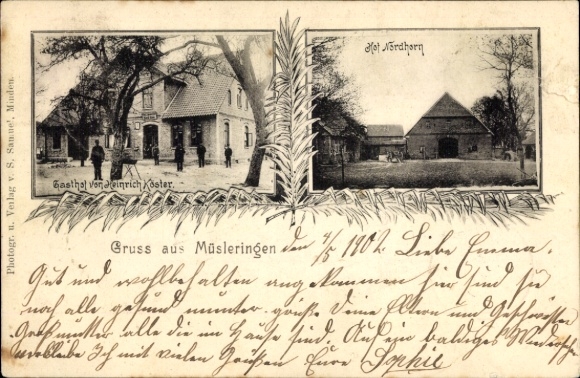 Hof Nordhorn
Gasthof von Heinrich Köster.
Photogr. u. Verlag v. S. Sammet, Minden.
Gruss aus Müsleringen den 4/5 1902. Liebe Emma.
Gut und wohlbehalten angekommen hier sind sie
noch alle gesund munter. grüße Deine Eltern und Geschwister
Großmutter alle die im Hause sind. Auf ein baldiges Wiedersehn
verbleibe Ich mit vielen Grüßen Eure Sophie